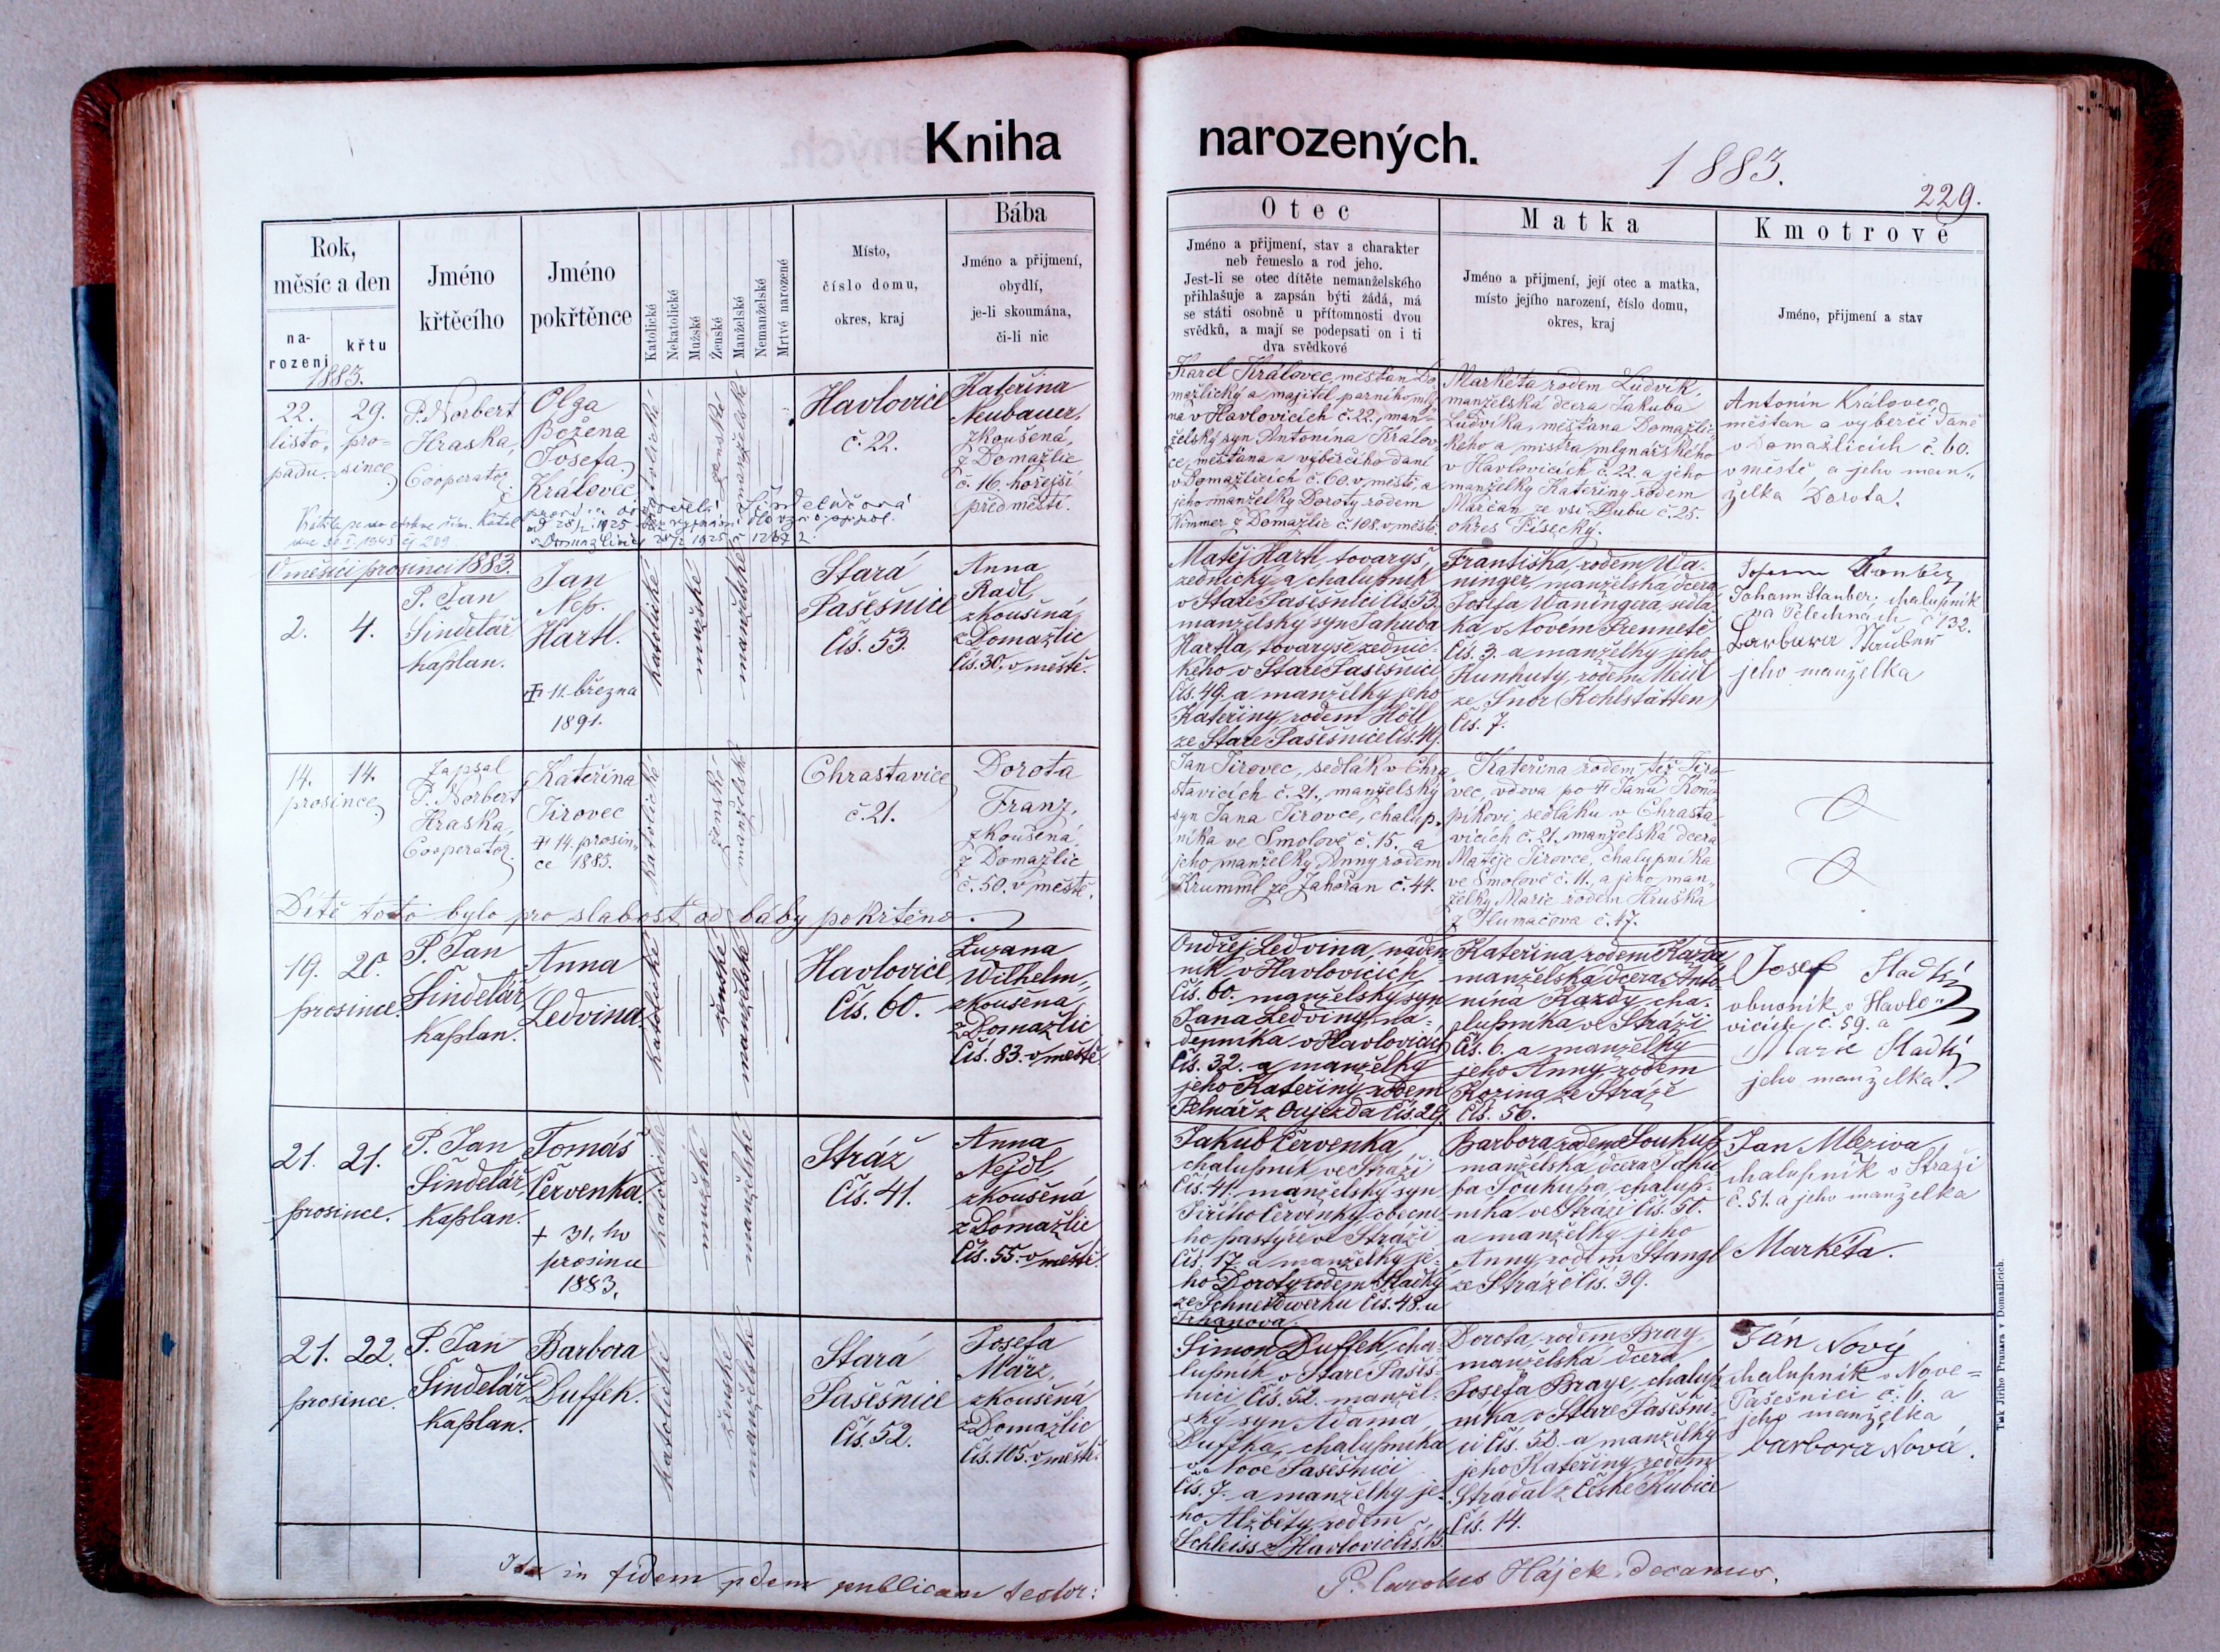 Kniha narozených.
1883.
229.
Rok,
měsíc a den
na-
rození
křtu
1883.
Jméno
křtěcího
Jméno
pokřtěnce
Katolické
Nekatolické
Mužské
Ženské
Manželské
Nemanželské
Mrtvě narozené
Místo,
číslo domu,
okres, kraj
Bába
Jméno a přijmení,
obydlí,
je-li skoumána,
či-li nic
Otec
Jméno a přijmení, stav a charakter
neb řemeslo a rod jeho.
Jest-li se otec dítěte nemanželského
přihlašuje a zapsán býti žádá, má
se státi osobně u přítomnosti dvou
svědků, a mají se podepsati on i ti
dva svědkové
Matka
Jméno a přijmení, její otec a matka,
místo jejího narození, číslo domu,
okres, kraj
Kmotrové
Jméno, přijmení a stav
22. 29.
listo- pro-
padu. since
P. Norbert
Hraska,
Cooperator
Olga
Božena
Josefa
Královec
katolické
ženské
manželské
Havlovice
č. 22.
Kateřina
Neubauer,
zkoušená,
z Domažlic
č. 16. hořejší
předměstí.
Karel Královec, měšťan Do-
mažlický a majitel parního mlý-
na v Havlovicích č. 22., man-
želský syn Antonína Králov-
ce, měšťana a výběrčího daní
v Domažlicích č. 60. v městě, a
jeho manželky Doroty rodem
Nimmer z Domažlic č. 108. v městě.
Markéta rodem Ludvík,
manželská dcera Jakuba
Ludvíka, měšťana Domažlic-
kého a mistra mlynářského
v Havlovicích č. 22. a jeho
manželky Kateřiny rodem
Marčan ze vsi Dubu č. 25.
okres Písecký.
Antonín Královec,
měšťan a výberčí daně
v Domažlicích č. 60.
v městě, a jeho man-
želka Dorota.
V měsíci prosinci 1883.
2. 4.
P. Jan
Šindelář
kaplan.
Jan
Nep.
Hartl.
✝ 11. března
1891.
katolické
mužské
manželské
Stará
Pasečnice
Čís. 53.
Anna
Radl,
zkoušená
z Domažlic
čís. 30. v městě.
Matěj Hartl, tovaryš
zednický a chalupník
v Staré Pasečnici čís. 53.
manželský syn Jakuba
Hartla, tovaryše zednic-
kého v Staré Pasečnici
čís. 49. a manželky jeho
Kateřiny, rodem Höll
ze Staré Pasečnice čís. 49.
Františka, rodem Wa-
ninger, manželská dcera
Josefa Waningera, sedlá-
ka v Novém Prennetě
čís. 3. a manželky jeho
Kunhuty, rodem Meidl
ze Šnor (Kohlstätten)
čís. 7.
Johann Stauber, chalupník
na Pelechnách č. 132.
Barbara Stauber
jeho manželka
14. 14.
prosince
Zapsal
P. Norbert
Hraska,
Cooperator.
Kateřina
Jírovec
✝ 14. prosin-
ce 1883.
katolické
ženské
manželské
Chrastavice
č. 21.
Dorota
Franz,
zkoušená,
z Domažlic
č. 50. v městě.
Jan Jírovec, sedlák v Chra-
stavicích č. 21., manželský
syn Jana Jírovce, chalup-
níka ve Smolově č. 15. a
jeho manželky Anny rodem
Krumml ze Zahořan č. 44.
Kateřina rodem též Jíro-
vec, vdova po ✝ Janu Kono-
píkovi, sedláku v Chrasta-
vicích č. 21., manželská dcera
Matěje Jírovce, chalupníka
ve Smolově č. 11., a jeho man-
želky Marie rodem Hruška
z Tlumačova č. 47.
Dítě toto bylo pro slabost od báby pokřtěno.
19. 20.
prosince.
P. Jan
Šindelář,
kaplan.
Anna
Ledvina.
katolické
ženské
manželské
Havlovice
Čís. 60.
Zuzana
Wilhelm,
zkoušená,
z Domažlic
čís. 83. v městě.
Ondřej Ledvina, náden-
ník v Havlovicích
čís. 60. manželský syn
Jana Ledviny, ná-
denníka v Havlovicích
čís. 32. a manželky
jeho Kateřiny, rodem
Pelnář z Oujezda čís. 29.
Kateřina rodem Kazda
manželská dcera Anto-
nína Kazdy, cha-
lupníka ve Stráži
čís. 6. a manželky
jeho Anny, rodem
Kozina ze Stráže
čís. 56.
Josef Hladký
obuvník v Havlo-
vicích č. 59. a
Marie Hladký
jeho manželka.
21. 21.
prosince.
P. Jan
Šindelář,
kaplan.
Tomáš
Červenka.
+ 31. ho
prosince
1883.
katolické
mužské
manželské
Stráž
Čís. 41.
Anna
Nejdl,
zkoušená
z Domažlic
čís. 55. v městě.
Jakub Červenka,
chalupník ve Stráži
čís. 41. manželský syn
Jiřího Červenky, obecní-
ho pastýře ve Stráži
čís. 17. a manželky je-
ho Doroty, rodem Sladký
ze Schneidwerku čís. 48. u
Trhanova.
Barbora, rodem Soukup
manželská dcera Jaku-
ba Soukupa, chalup-
níka ve Stráži čís. 50.
a manželky jeho
Anny, rodem Stangl
ze Stráže čís. 39.
Jan Mleziva,
chalupník v Stráži
č. 51. a jeho manželka
Markéta.
21. 22.
prosince.
P. Jan
Šindelář
kaplan.
Barbora
Duffek.
katolické
ženské
manželské
Stará
Pasečnice
Čís. 52.
Josefa
März,
zkoušená
z Domažlic
čís. 105. v městě.
Šimon Duffek, cha-
lupník v Staré Paseč-
nici čís. 52. manžel-
ský syn Adama
Duffka, chalupníka
v Nové Pasečnici
čís. 7. a manželky je-
ho Alžběty, rodem
Schleiss z Havlovic čís. 15.
Dorota, rodem Bray,
manželská dcera
Josefa Braye, chalup-
níka v Staré Pasečni-
ci čís. 52. a manželky
jeho Kateřiny, rodem
Strádal z České Kubice
čís. 14.
Ján Nový
chalupník v Nove-
Pašešnici č. 6. a
jeho manželka
barbora Nová.
Ita in fidem pdem publicam testor:
P. Carolus Hájek, decanus.
Tisk Jiřího Prunara v Domažlicích.